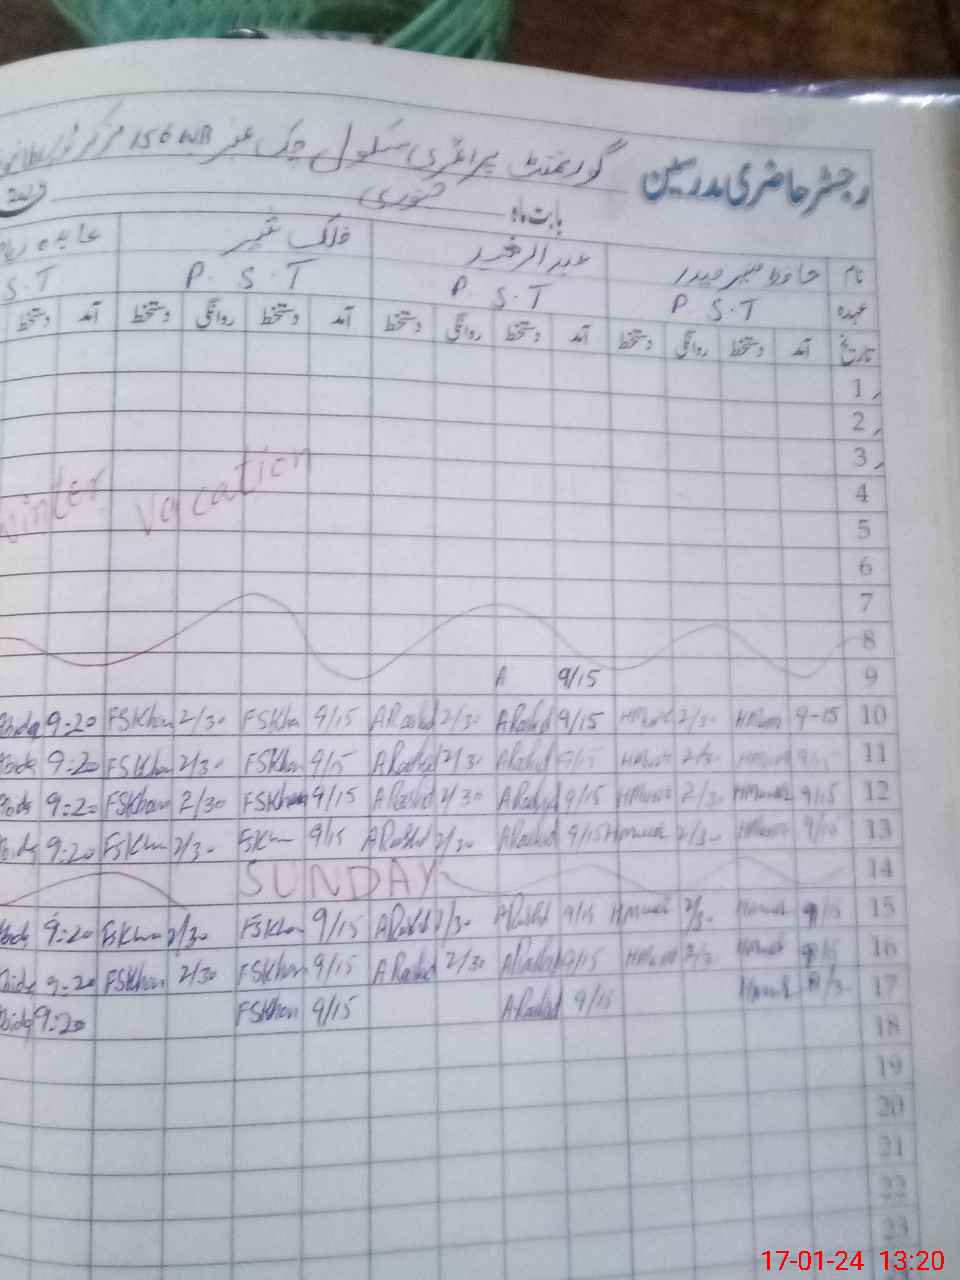 رجسٹر حاضری مدرسین گورنمنٹ پرائمری سکول چک نمبر 156 WB مرکز
بابت ماہ جنوری
نام حافظ منیر حیدر عبدالرشید فلک شیر عابدہ
عہدہ P.S.T P.S.T P.S.T S.T
تاریخ آمد دستخط روانگی دستخط آمد دستخط روانگی دستخط آمد دستخط روانگی دستخط آمد دستخط
1
2
3
Winter vacation
4
5
6
7
8
A 9/15 9
9-20 FSKhan 2/30 FSKhan 9/15 ARashid 2/30 ARashid 9/15 HMunir 2/30 HMunir 9-15 10
9-20 FSKhan 2/30 FSKhan 9/15 ARashid 2/30 ARashid 9/15 HMunir 2/30 HMunir 9/15 11
9-20 FSKhan 2/30 FSKhan 9/15 ARashid 2/30 ARashid 9/15 HMunir 2/30 HMunir 9/15 12
9-20 FSKhan 2/30 FSKhan 9/15 ARashid 2/30 ARashid 9/15 HMunir 2/30 HMunir 9/15 13
SUNDAY 14
9-20 FSKhan 2/30 FSKhan 9/15 ARashid 2/30 ARashid 9/15 HMunir 2/30 HMunir 9/15 15
9-20 FSKhan 2/30 FSKhan 9/15 ARashid 2/30 ARashid 9/15 HMunir 2/30 HMunir 9/15 16
9-20 FSKhan 9/15 ARashid 9/15 HMunir 17
18
19
20
21
22
23
17-01-24 13:20